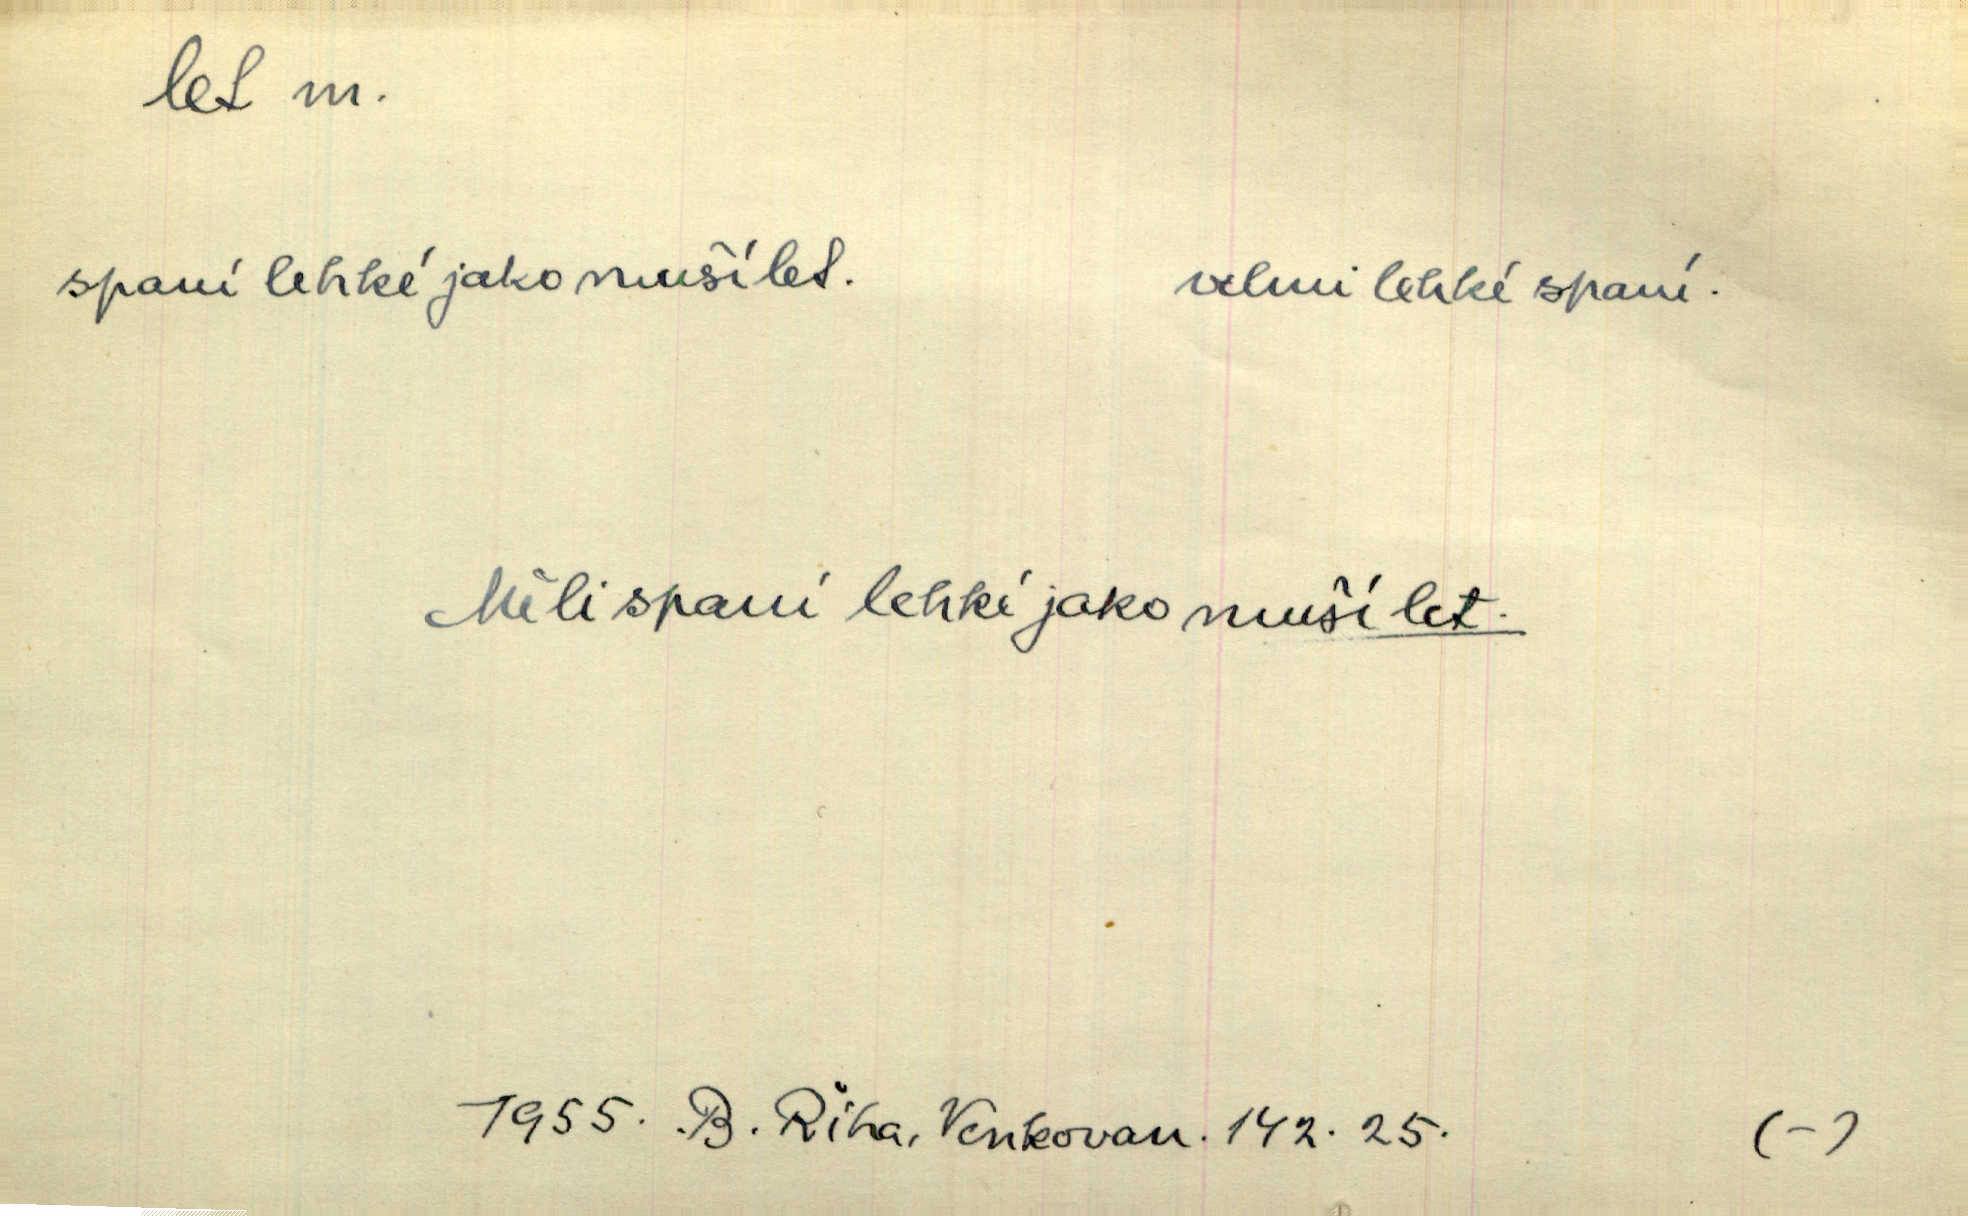 let m.
spaní lehké jako muší let. velmi lehké spaní.
Měli spaní lehké jako muší let.
1955. B. Říha, Venkovan. 142. 25. (-)